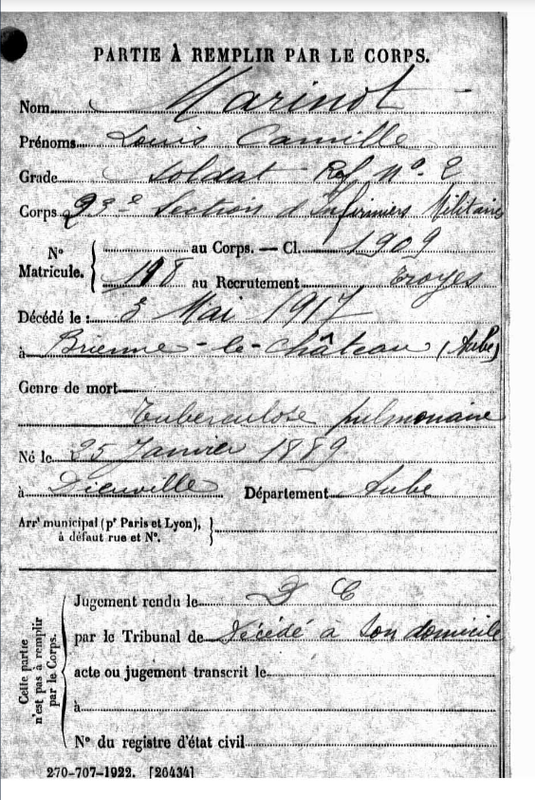 PARTIE À REMPLIR PAR LE CORPS.
Nom Marinot
Prénoms Louis Camille
Grade Soldat Réf nº 2
Corps Section d'Infirmiers Militaires
Nº Matricule. au Corps. — Cl. 1909
198 au Recrutement Troyes
Décédé le : 3 Mai 1917
à Brienne-le-Château (Aube)
Genre de mort
Tuberculose pulmonaire
Né le 25 Janvier 1889
à Dienville Département Aube
Arrᵗ municipal (pʳ Paris et Lyon),
à défaut rue et Nº.
Cette partie n'est pas à remplir par le Corps.
Jugement rendu le D C
par le Tribunal de Décédé à son domicile
acte ou jugement transcrit le
à
Nº du registre d'état civil
270-707-1922. [26434]